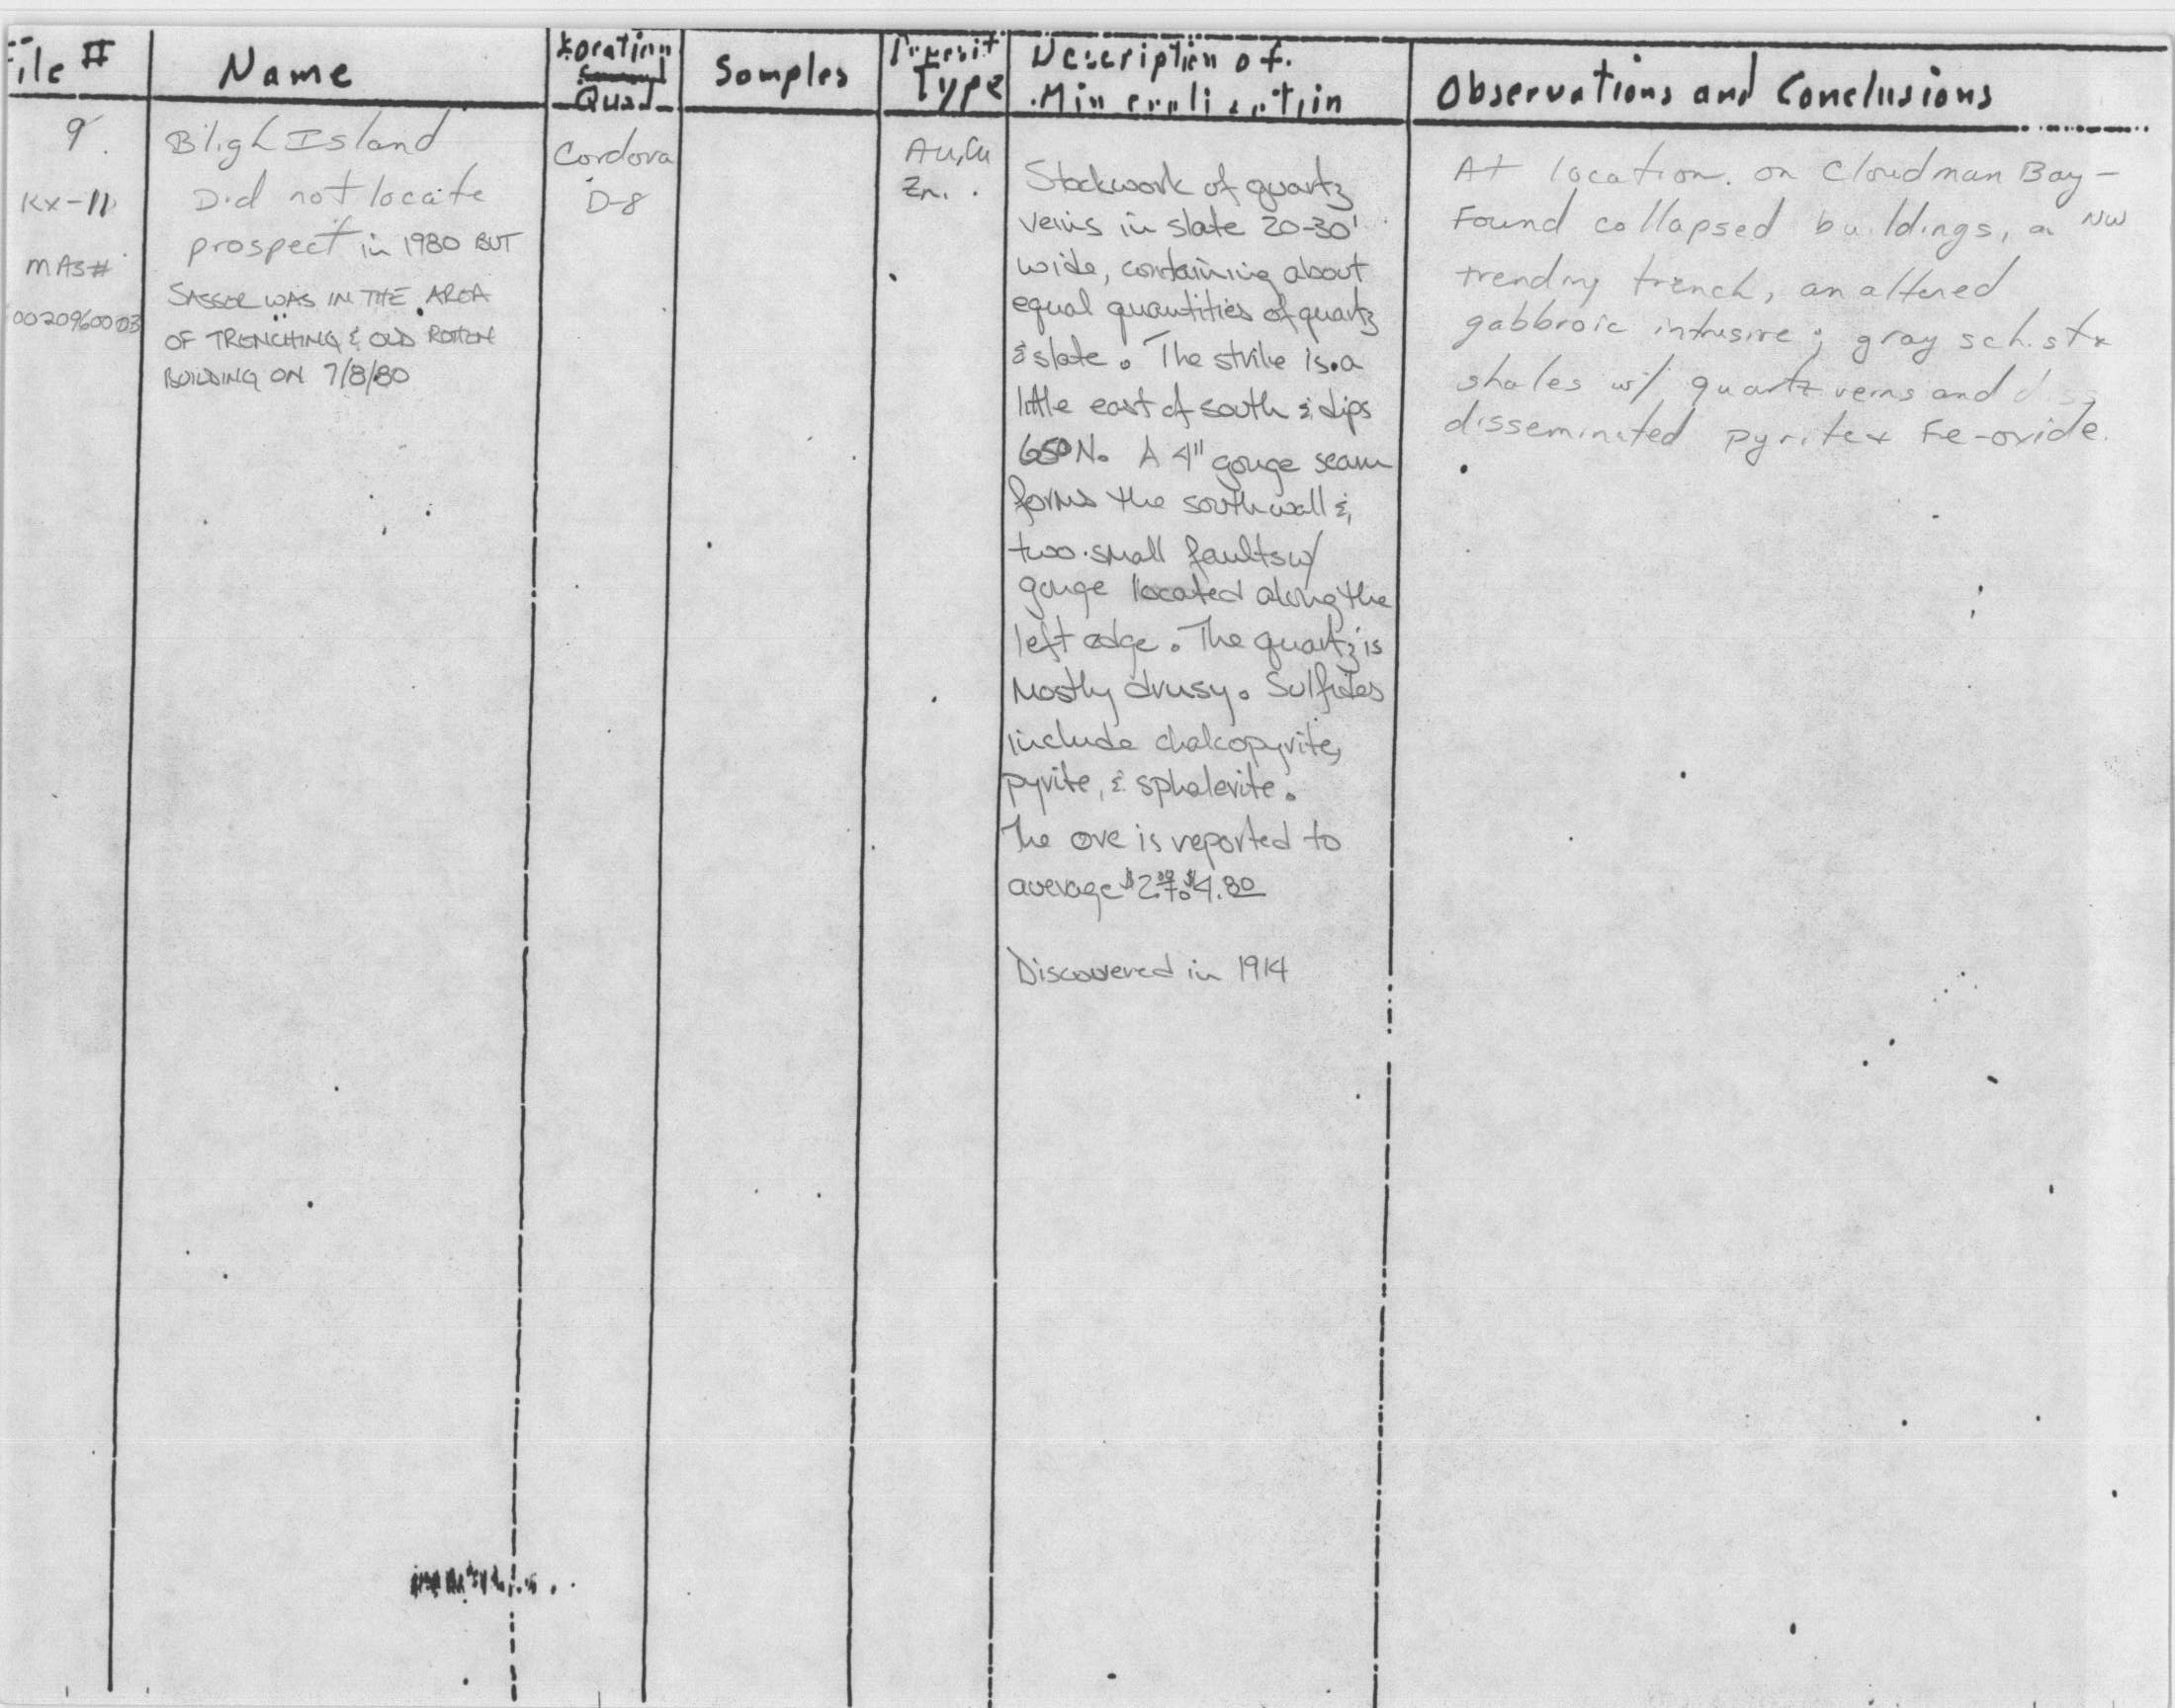 File #
Name
Location
Quad
Samples
Deposit
Type
Description of
Mineralization
Observations and Conclusions
9
Kx-11
MAS#
0020960003
Bligh Island
Did not locate
prospect in 1980 BUT
SASSER WAS IN THE AREA
OF TRENCHING & OLD ROTTEN
BUILDING ON 7/8/80
Cordova
D-8
Au, Cu
Zn.
Stockwork of quartz
veins in slate 20-30'
wide, containing about
equal quantities of quartz
& slate. The strike is a
little east of south & dips
65° N. A 4" gouge seam
forms the south wall &
two small faults w/
gouge located along the
left edge. The quartz is
mostly drusy. Sulfides
include chalcopyrite,
pyrite, & sphalerite.
The ore is reported to
average $2.00 to $4.80
Discovered in 1914
At location on Cloudman Bay -
Found collapsed buildings, a NW
trending trench, an altered
gabbroic intrusive; gray schist &
shales w/ quartz veins and
disseminated pyrite & Fe-oxide.